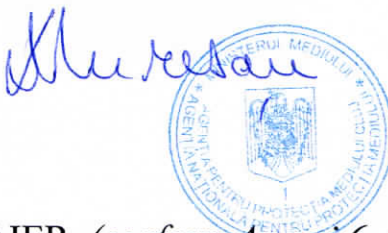 Muresan
MINISTERUL MEDIULUI
AGENȚIA NAȚIONALĂ PENTRU PROTECȚIA MEDIULUI
AGENȚIA PENTRU PROTECȚIA MEDIULUI CLUJ
1
IER (conform